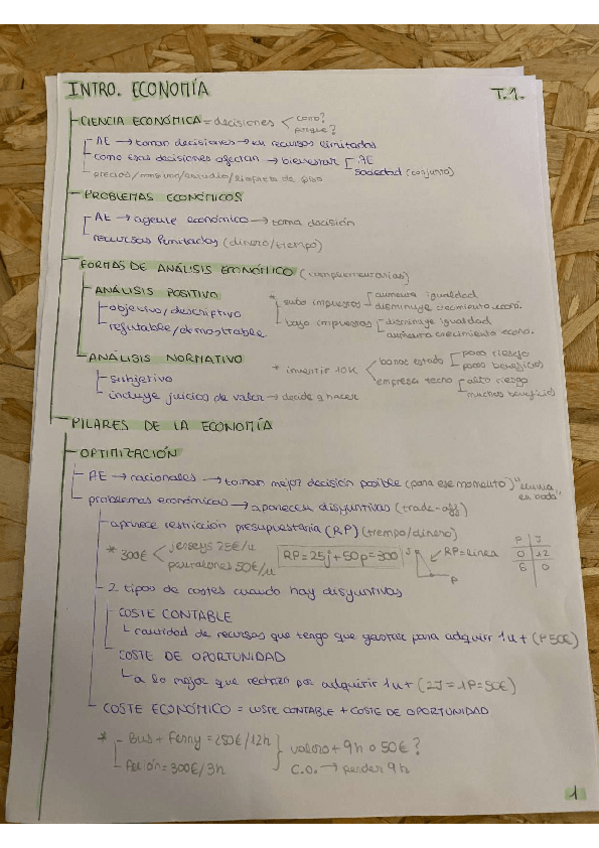 INTRO. ECONOMÍA T.1.
CIENCIA ECONÓMICA = decisiones como?
porque?
AE → toman decisiones → en recursos limitados
como esas decisiones afectan → bienestar AE
sociedad (conjunto)
precios/
PROBLEMAS ECONÓMICOS
AE → agente económico → toma decisión
recursos limitados (dinero/tiempo)
FORMAS DE ANÁLISIS ECONÓMICO (complementarias)
ANÁLISIS POSITIVO
objetivo/descriptivo
refutable/demostrable
* subo impuestos aumenta igualdad
disminuye crecimiento econó.
bajo impuestos disminuye igualdad
aumenta crecimiento econo.
ANÁLISIS NORMATIVO
subjetivo
incluye juicios de valor → decide q hacer
* invertir 10K bonos estado poco riesgo
poco beneficios
empresa tecno alto riesgo
muchos beneficios
PILARES DE LA ECONOMÍA
OPTIMIZACIÓN
AE → racionales → toman mejor decisión posible (para ese momento)
problemas económicos → aparecen disyuntivas (trade-off)
aparece restricción presupuestaria (RP) (tiempo/dinero)
* 300€ jerseys 25€/u
pantalones 50€/u
RP = 25j + 50p = 300
J RP = línea
P
P J
0 12
6 0
2 tipos de costes cuando hay disyuntivas
COSTE CONTABLE
cantidad de recursos que tengo que gastar para adquirir 1u + (P 50€)
COSTE DE OPORTUNIDAD
a lo mejor que rechazo por adquirir 1u + (2J = 1P = 50€)
COSTE ECONÓMICO = COSTE CONTABLE + COSTE DE OPORTUNIDAD
* Bus + Ferry = 250€/12h
Avión = 300€/3h
valoro + 9h o 50€?
C.O. → perder 9h
1